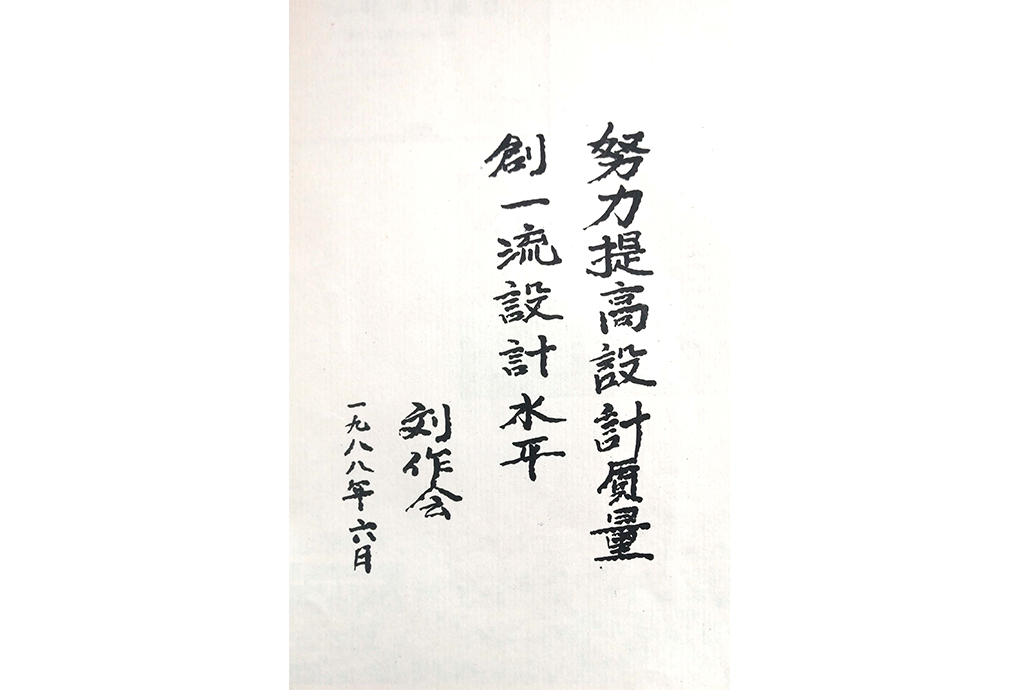 努力提高設計質量
創一流設計水平
刘作会
一九八八年六月